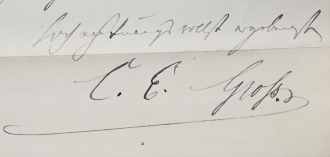 hochachtungsvollst ergebenst
C. E. Gross